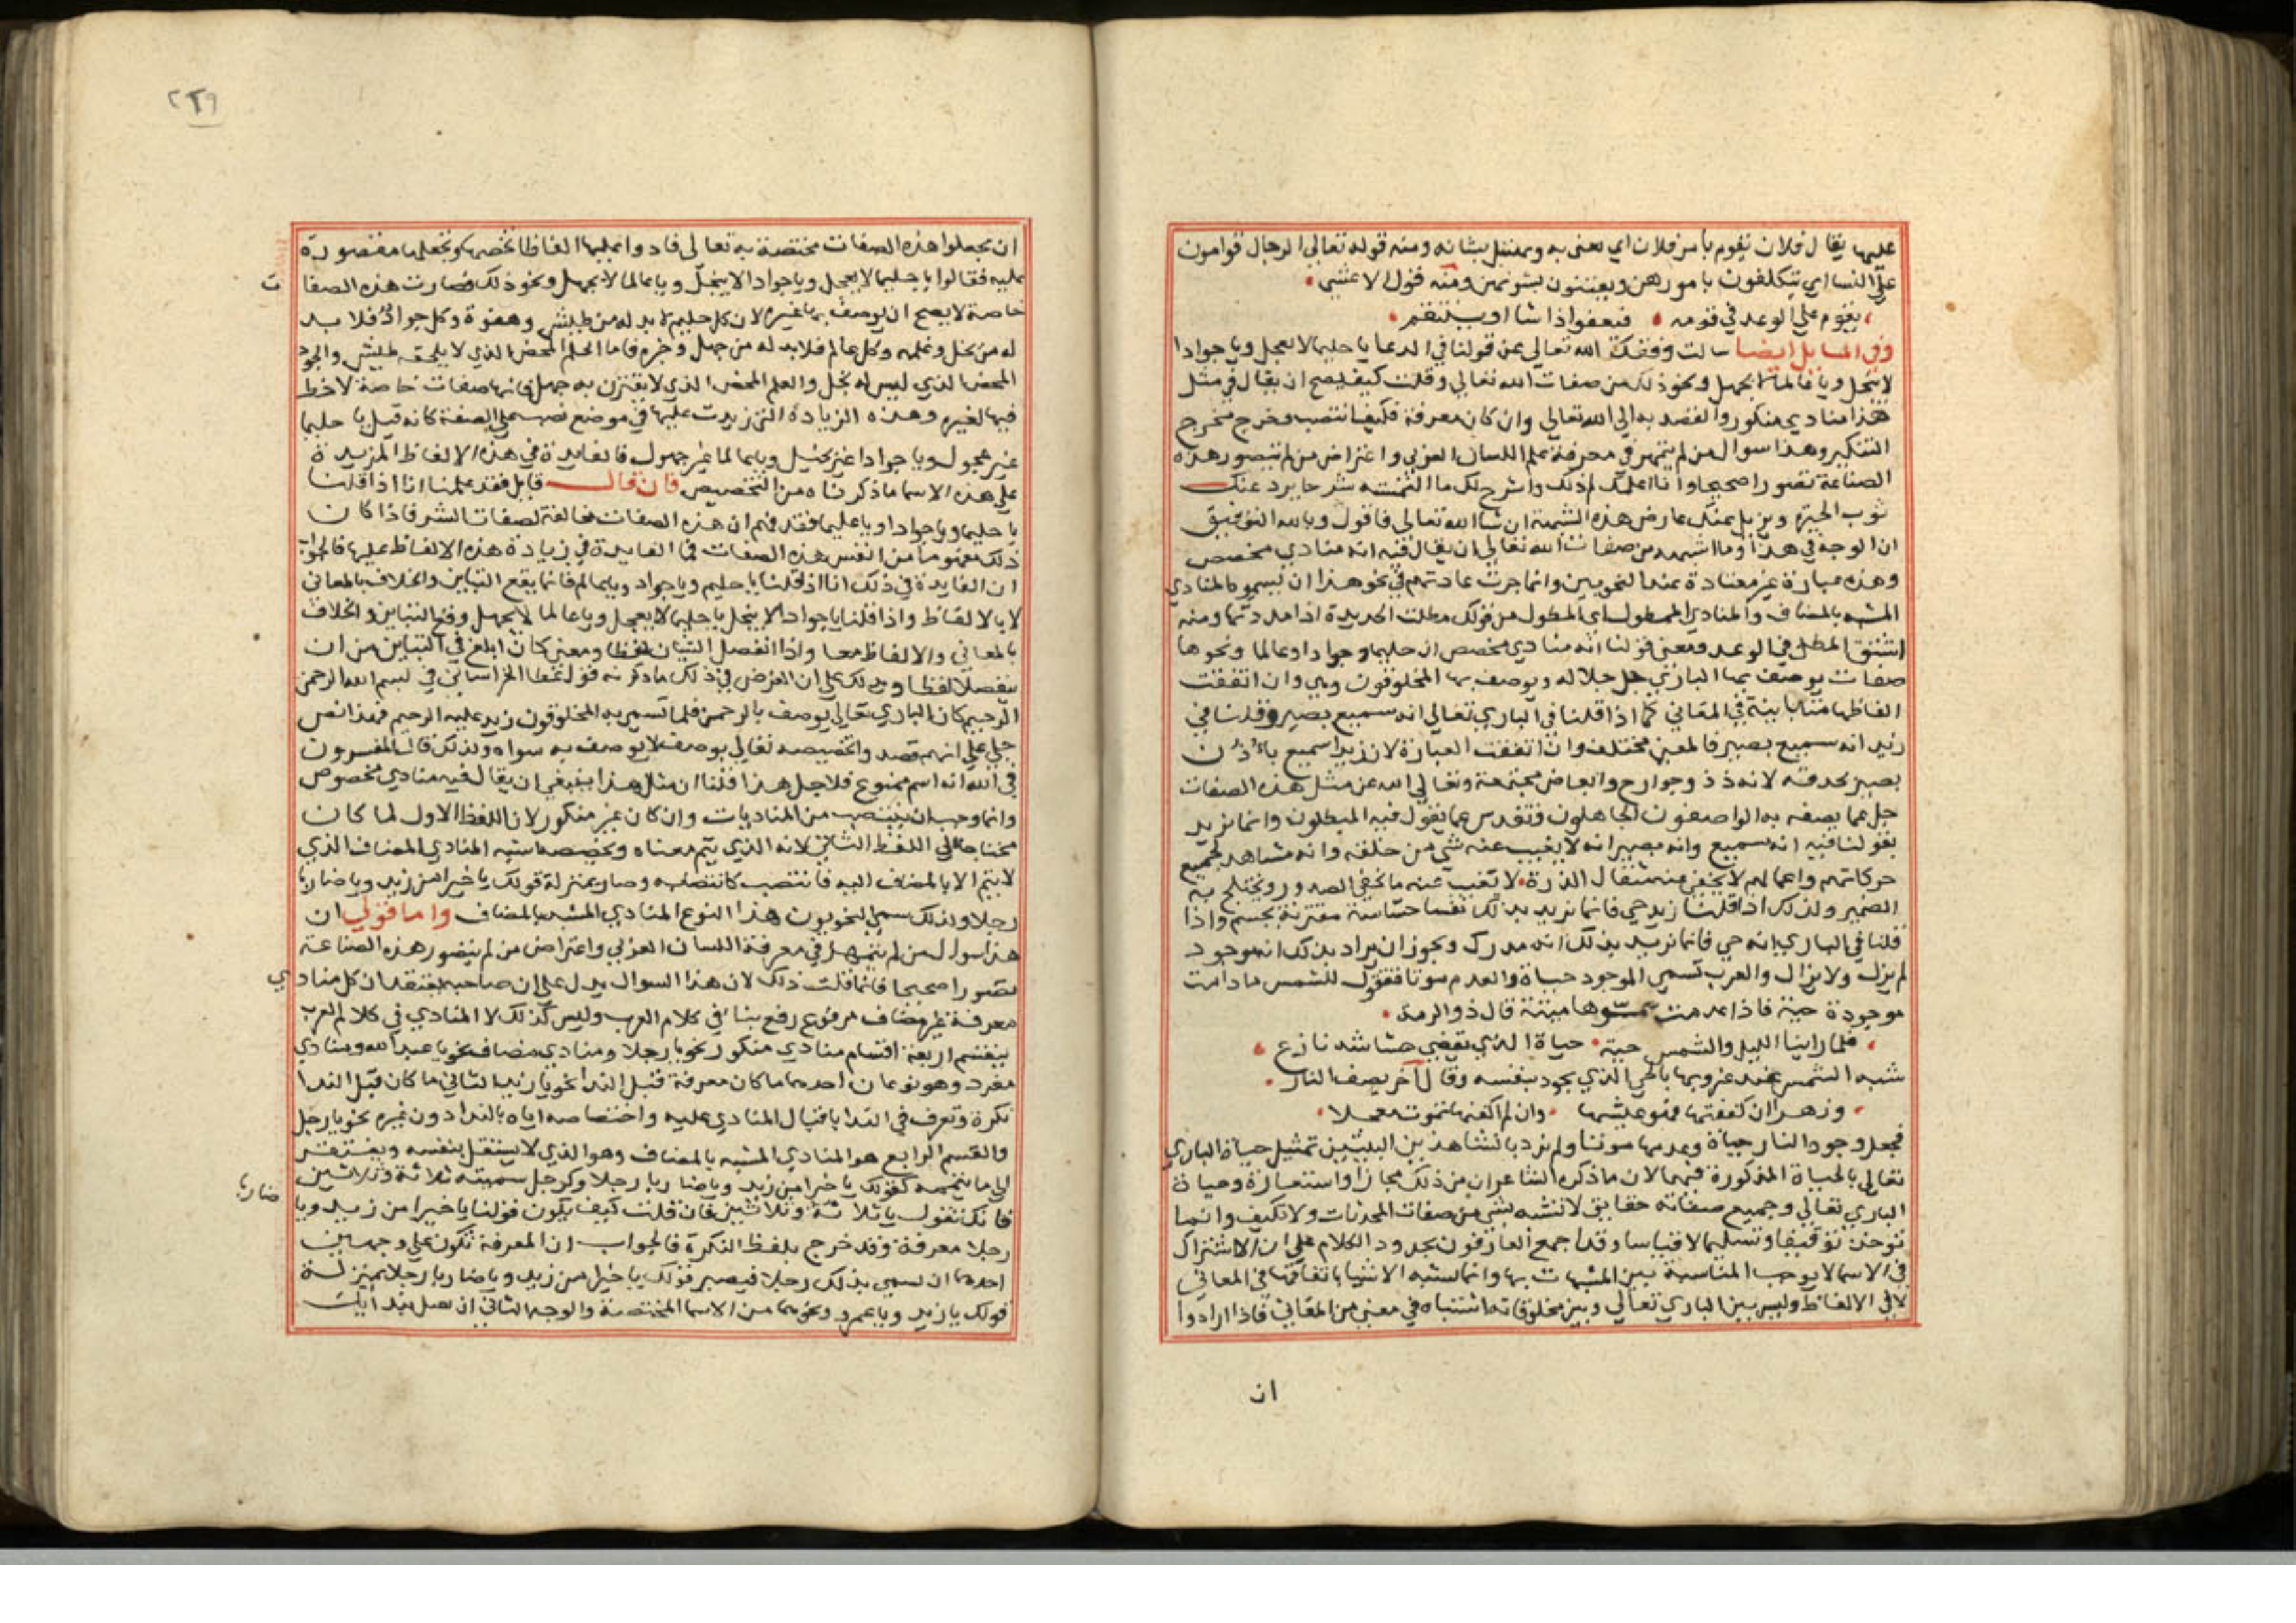 عليها يقال فلان يقوم بأمر فلان اي يعنى به ويهتبل بشانه ومنه قوله تعالى الرجال قوامون
على النسا اي يتكلفون بامورهن ويعتنون بشونهن ومنه قول الاعشي
يقوم علي الوعد في قومه فيعفو اذا شا او ينتقم
وفي المسايل ايضا سالت وفقك الله تعالى عن قولنا في الدعا يا حليما لا يعجل ويا جوادا
لا يبخل ويا عالما لا يجهل ونحو ذلك من صفات الله تعالي وقلت كيف يصح ان يقال في مثل
هذا منادي منكور والقصد به الى الله تعالي وان كان معرفة فكيف انتصب وخرج مخرج
التنكير وهذا سوال من لم يتمهر في معرفة علم اللسان العربي واعتراض من لم يتصور هذه
الصناعة تصورا صحيحا وانا اعلمك ذلك واشرح لك ما التمسته شرحا يرد عنك
ثوب الحيرة ويزيل عنك عارض هذه الشبهة ان شا الله تعالى فاقول وبالله التوفيق
ان الوجه في هذا وما اشبهه من صفات الله تعالي ان يقال فيه انه منادي مخصص
وهذه عبارة غير معتادة عند النحويين وانما جرت عادتهم في نحو هذا ان يسموه المنادي
المشبه بالمضاف والمنادي الممطول اي المطول من قولك مطلت الحديدة اذا مددتها ومنه
اشتق المطل في الوعد ومعني قولنا انه منادي مخصص ان حليما وجوادا وعالما ونحوها
صفات يوصف بها الباري جل جلاله ويوصف بها المخلوقون وهي وان اتفقت
الفاظها متباينة في المعاني كما اذا قلنا في الباري تعالي انه سميع بصير وقلنا في
زيد انه سميع بصير فالمعني مختلف وان اتفقت العبارة لان زيدا سميع باذن
بصير بحدقة لانه ذو جوارح وابعاض مجتمعة وتعالي الله عن مثل هذه الصفات
جل عما يصفه به الواصفون الجاهلون وتقدس عما يقول فيه المبطلون وانما نريد
بقولنا فيه انه سميع وانه بصير انه لا يغيب عنه شي من خلقه وانه مشاهد لجميع
حركاتهم واعمالهم لا يخفي عنه مثقال الذرة لا تغيب عنه ما تخفي الصدور ويختلج به
الضمير ولذلك اذا قلنا زيد حي فانما نريد بذلك نفسا حساسة مقترنة بجسم واذا
قلنا في الباري انه حي فانما نريد بذلك انه مدرك ويجوز ان يراد بذلك انه موجود
لم يزل ولا يزال والعرب تسمي الموجود حياة والعدم موتا فتقول للشمس ما دامت
موجودة حية فاذا عدمت سموها ميتة قال ذو الرمة
فلما راينا الليل والشمس حية حياة الذي يقضي حشاشة نازع
شبه الشمس عند غروبها بالحي الذي يجود بنفسه وقال آخر يصف النار
وزهرا ان كفنتها فهو عيشها وان لم اكفنها فموت معجلا
فجعل وجود النار حياة وعدمها موتا ولم نرد بانشادهذين البيتين تمثيل حياة الباري
تعالى بالحياة المذكورة فيهما لان ما ذكره الشاعران من ذلك مجازا واستعارة وحياة
الباري تعالي وجميع صفاته حقايق لا تشبه بشي من صفات المحدثات ولا تكيف وانما
توخذ توقيفا وتسليما لا قياسا وقد اجمع العارفون بحدود الكلام علي ان الاشتراك
في الاسما لا يوجب المناسبة بين المشبهات بها وانما تشبه الاشيا باتفاقها في المعاني
لا في الالفاظ وليس بين الباري تعالي وبين مخلوقاته اشتباه في معني من المعاني فاذا ارادوا
ان
٢٢٩
ان يجعلوا هذه الصفات مختصة به تعالى زادوا عليها الفاظا تخصها وتجعلها مقصورة
عليه فقالوا يا حليما لا يعجل ويا جوادا لا يبخل ويا عالما لا يجهل ونحو ذلك فصارت هذه الصفا
ت
خاصة لا يصح ان يوصف بها غيره لان كل حليم لا بد له من طيش وهفوة وكل جواد فلا بد
له من بخل وغلة وكل عالم فلا بد له من جهل وخره فاما الحلم المحض الذي لا يلحقه طيش والجود
المحض الذي ليس له بخل والعلم المحض الذي لا يقترن به جهل فانها صفات خاصة لا خط
فيها لغيره وهذه الزيادة التي زيدت عليها في موضع نصب على الصفة كانه قيل يا حليما
غير عجول ويا جوادا غير بخيل ويا عالما غير جهول فالفايدة في هذه الالفاظ المزيدة
علي هذه الاسما ما ذكرناه من التخصيص فان قال قايل فقد علمنا انا اذا قلنا
يا حليم ويا جواد او يا عليم فقد فهم ان هذه الصفات مخالفة لصفات البشر فاذا كان
ذلك مفهوما من انفس هذه الصفات فما الفايدة في زيادة هذه الالفاظ عليها فالجواب
ان الفايدة في ذلك انا اذا قلنا يا حليم ويا جواد ويا عالم فانما يقع التباين والخلاف بالمعاني
لا بالالفاظ واذا قلنا يا جوادا لا يبخل يا حليما لا يعجل ويا عالما لا يجهل وقع التباين والخلاف
بالمعاني والالفاظ معا واذا انفصل الشيان لفظا ومعني كان ابلغ في التباين من ان
ينفصلا لفظا ويدلك علي ان الغرض في ذلك ما ذكرته قول عطا الخراساني في بسم الله الرحمن
الرحيم كان الباري تعالي يوصف بالرحمن فلما تسمي به المخلوقون زيد عليه الرحيم فهذا نص
جلي علي انهم قصدوا تخصيصه تعالي بوصف لا يوصف به سواه ولذلك قال المفسرون
في الله انه اسم ممنوع فلاجل هذا قلنا ان مثل هذا ينبغي ان يقال فيه منادي مخصوص
وانما وجب ان ينتصب من المناديات وان كان غير منكور لان اللفظ الاول لما كان
محتاجا الى اللفظ الثاني لانه الذي يتم معناه وتخصصه اشبه المنادي المضاف الذي
لا يتم الا بالمضاف اليه فانتصب كانتصابه وصار بمنزلة قولك يا خيرا من زيد ويا ضاربا
رجلا ولذلك سمى النحويون هذا النوع المنادي المشبه بالمضاف واما قولي ان
هذا سوال من لم يتمهل في معرفة اللسان العربي واعتراض من لم يتصور هذه الصناعة
تصورا صحيحا فانما قلت ذلك لان هذا السوال يدل على ان صاحبه يعتقد ان كل منادي
معرفة غير مضاف مرفوع رفع بناء في كلام العرب وليس كذلك لا المنادي في كلام العرب
ينقسم اربعة اقسام منادي منكور نحو يا رجلا ومنادي مضاف نحو يا عبد الله ومنادي
مفرد وهو نوعان احدهما ما كان معرفة قبل الندا نحو يا زيد الثاني ما كان قبل الندا
نكرة وتعرف في الندا باقبال المنادي عليه واختصاصه اياه بالندا دون غيره نحو يا رجل
والقسم الرابع هو المنادي المشبه بالمضاف وهو الذي لا يستقل بنفسه ويفتقر
الى ما يتممه كقولك يا خيرا من زيد ويا ضاربا رجلا وكرجل سميته ثلاثة وثلاثين
فانك تقول يا ثلاثة وثلاثين فان قلت كيف يكون قولنا يا خيرا من زيد ويا
ضاربا
رجلا معرفة وقد خرج بلفظ النكرة فالجواب ان المعرفة تكون علي وجهين
احدهما ان تسمي بذلك رجلا فيصير قولك يا خيرا من زيد ويا ضاربا رجلا بمنزلة
قولك يا زيد ويا عمرو ونحوهما من الاسما المختصة والوجه الثاني ان